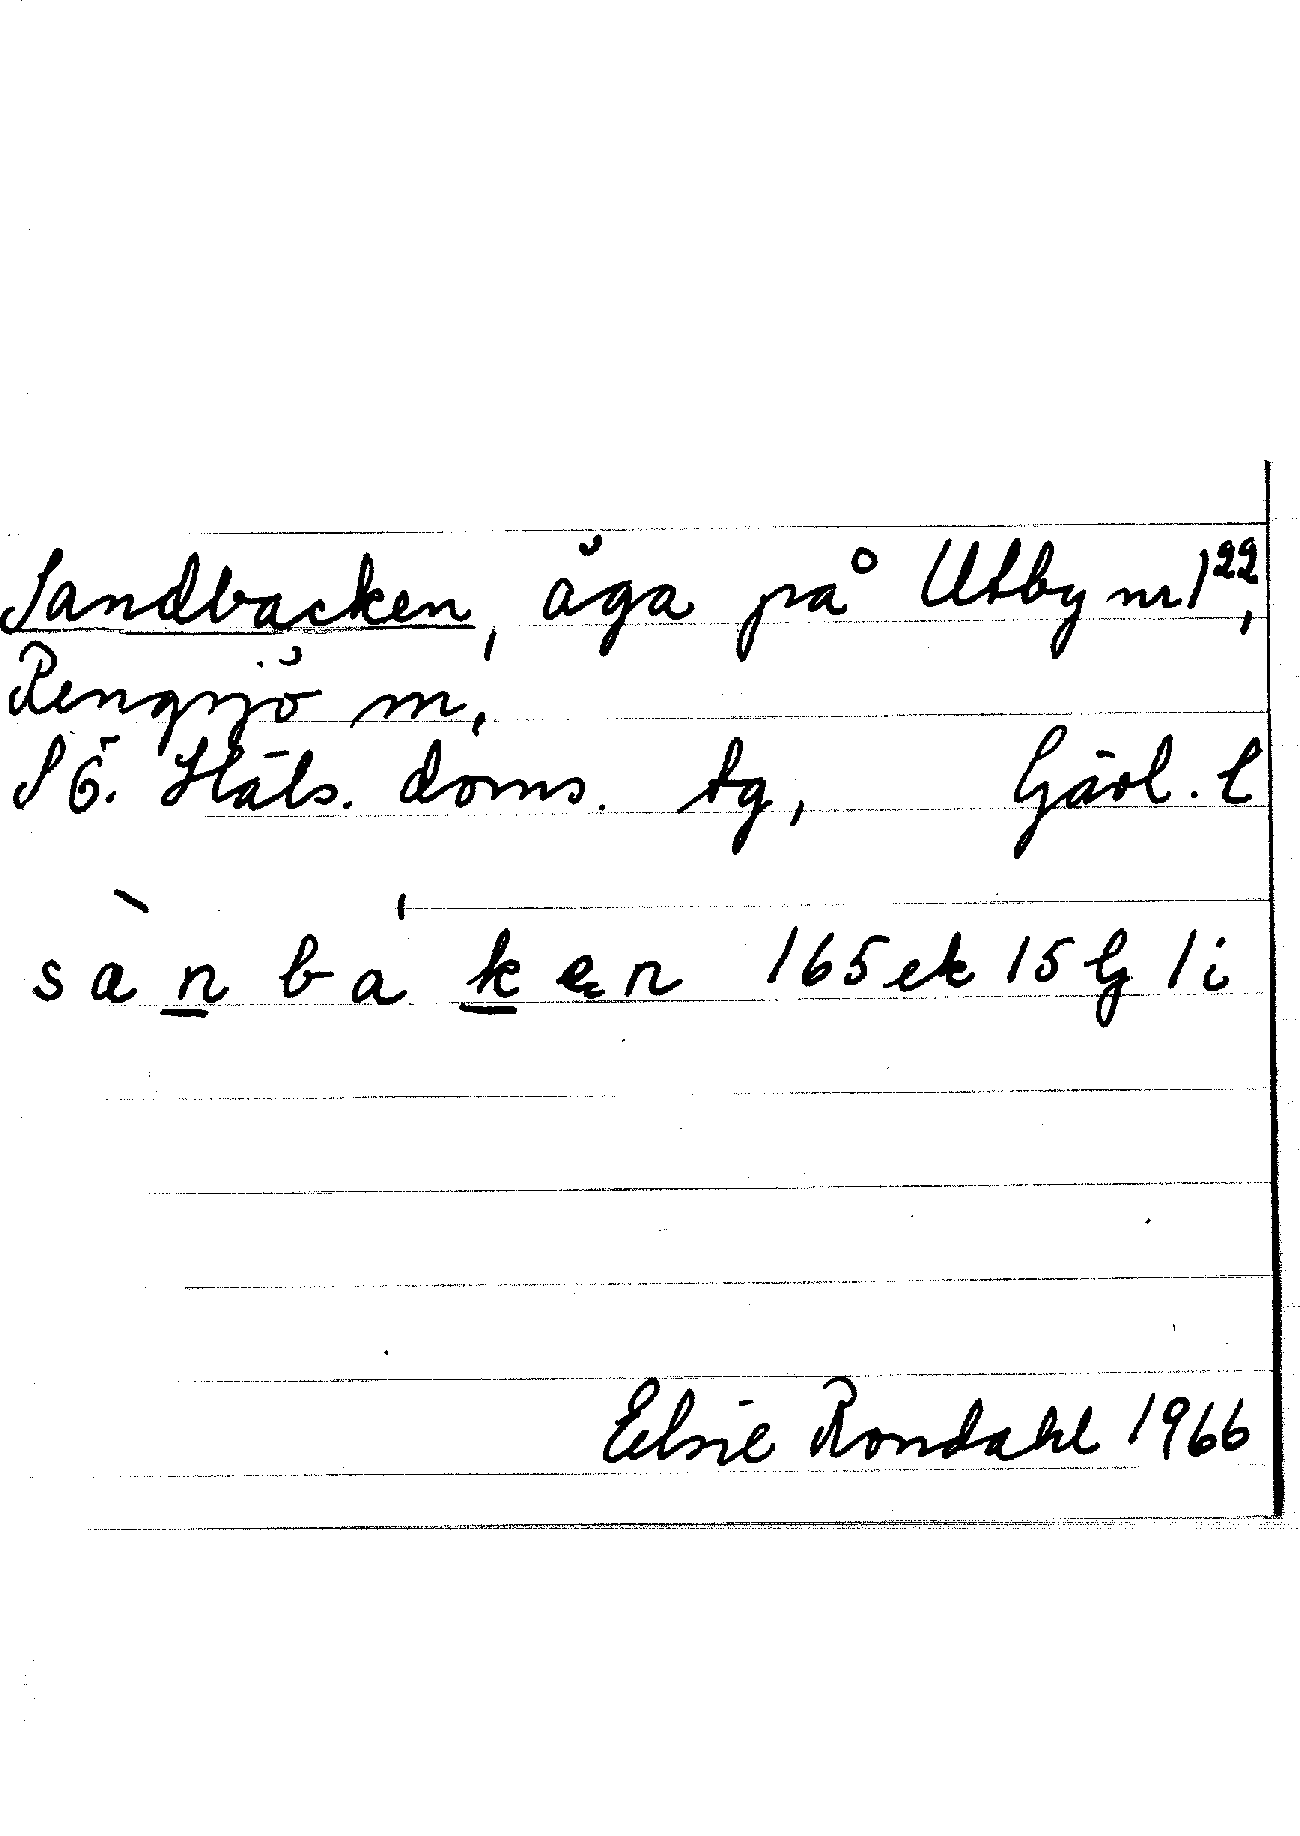 Sandbacken, äga på Utby nr 1²²,
Rengsjö sn,
S ö. Häls. doms. tg, Gävl. l
sànbaˈken 165 ek 15 Gj 1 i
Elsie Rondahl 1966